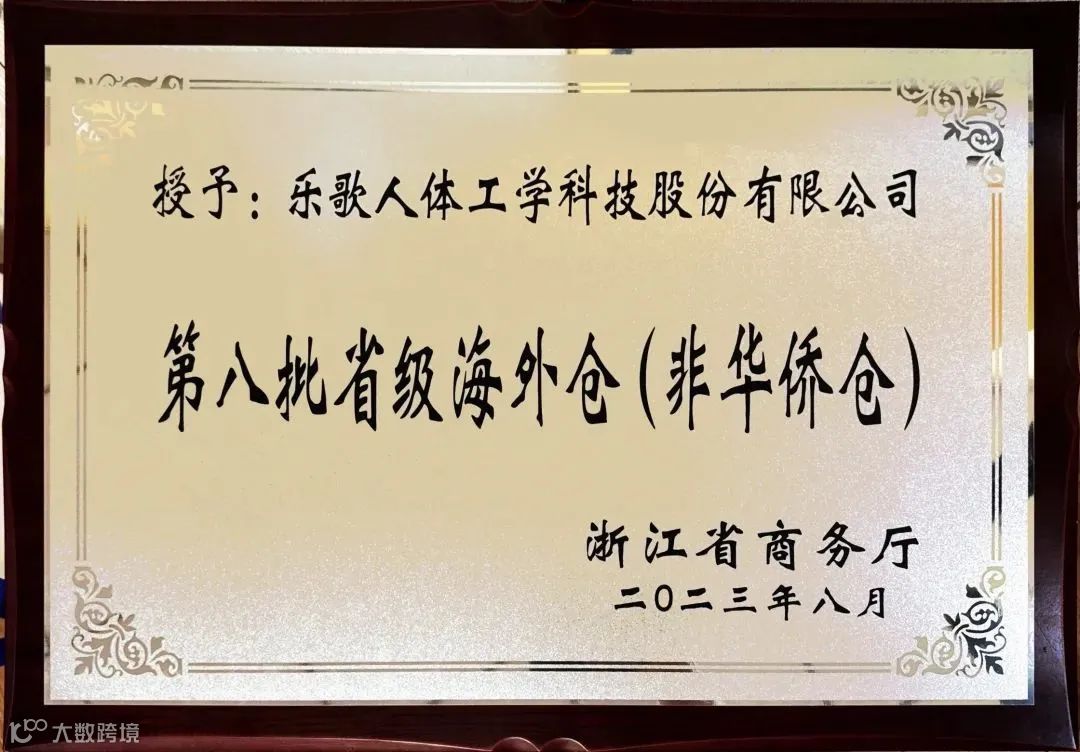 授予：乐歌人体工学科技股份有限公司
第八批省级海外仓（非华侨仓）
浙江省商务厅
二〇二三年八月
10100 大数跨境